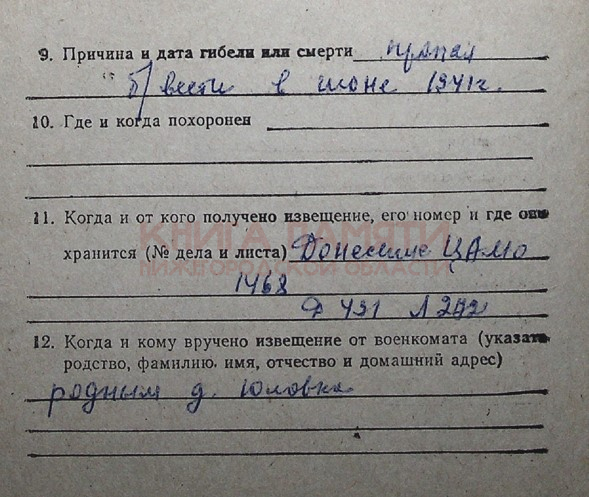 9. Причина и дата гибели или смерти пропал
б/вести в июне 1941г.
10. Где и когда похоронен
11. Когда и от кого получено извещение, его номер и где оно
КНИГА ПАМЯТИ
хранится (№ дела и листа) Донесение ЦАМО
НИЖЕГОРОДСКОЙ ОБЛАСТИ
1468
Д 421 Л 272
12. Когда и кому вручено извещение от военкомата (указать
родство, фамилию, имя, отчество и домашний адрес)
родным д. Юловка